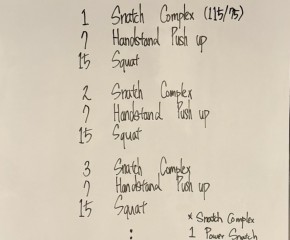 1 Snatch Complex (115/75)
7 Handstand Push up
15 Squat
2 Snatch Complex
7 Handstand Push up
15 Squat
3 Snatch Complex
7 Handstand Push up
15 Squat
:
* Snatch Complex
1 Power Snatch